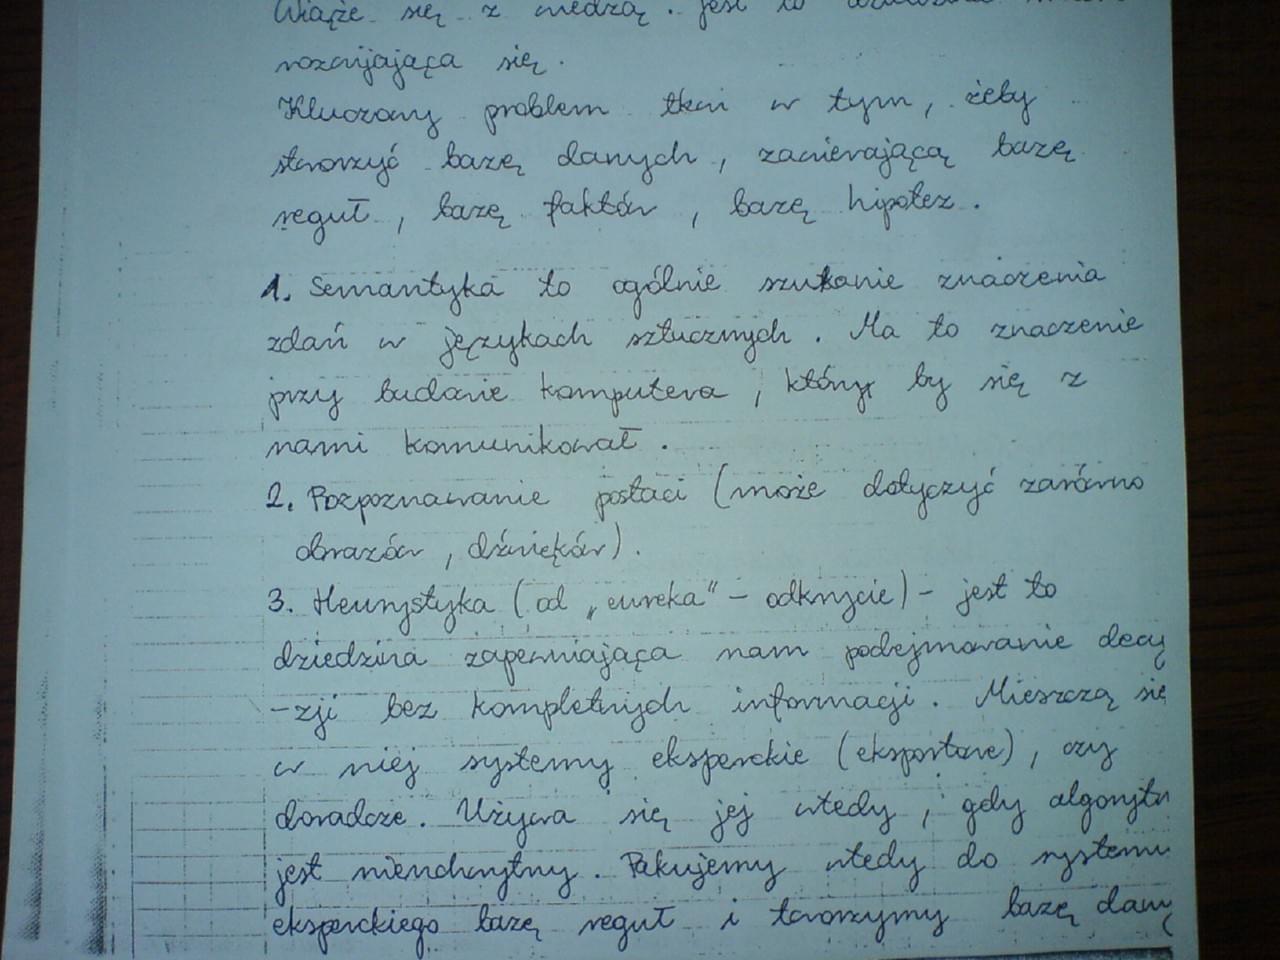 Wiąże się z wiedzą. Jest to
rozwijająca się.
Kluczowy problem tkwi w tym, żeby
stworzyć bazę danych, zawierającą bazę
reguł, bazę faktów, bazę hipotez.
1. Semantyka to ogólnie szukanie znaczenia
zdań w językach sztucznych. Ma to znaczenie
przy budowie komputera, który by się z
nami komunikował.
2. Rozpoznawanie postaci (może dotyczyć zarówno
obrazów, dźwięków).
3. Heurystyka (od „eureka" - odkrycie) - jest to
dziedzina zapewniająca nam podejmowanie decy
-zji bez kompletnych informacji. Mieszczą się
w niej systemy eksperckie (eksportowe), czy
doradcze. Używa się jej wtedy, gdy algorytm
jest nieuchwytny. Pakujemy wtedy do systemu
eksperckiego bazę reguł i tworzymy bazę dany